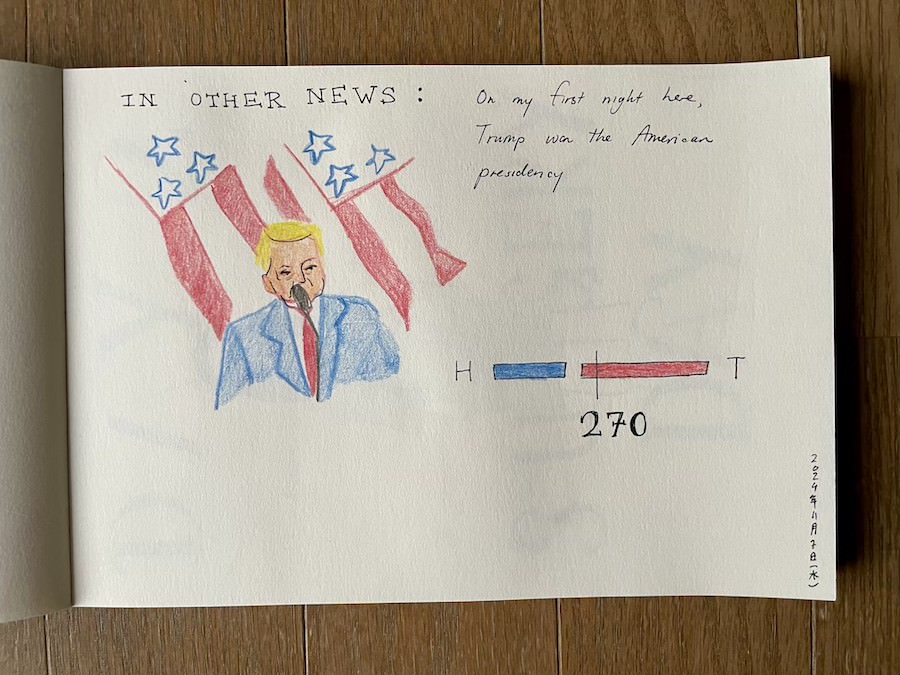 IN OTHER NEWS :
On my first night here,
Trump won the American
presidency
H
T
270
2024年11月7日(水)